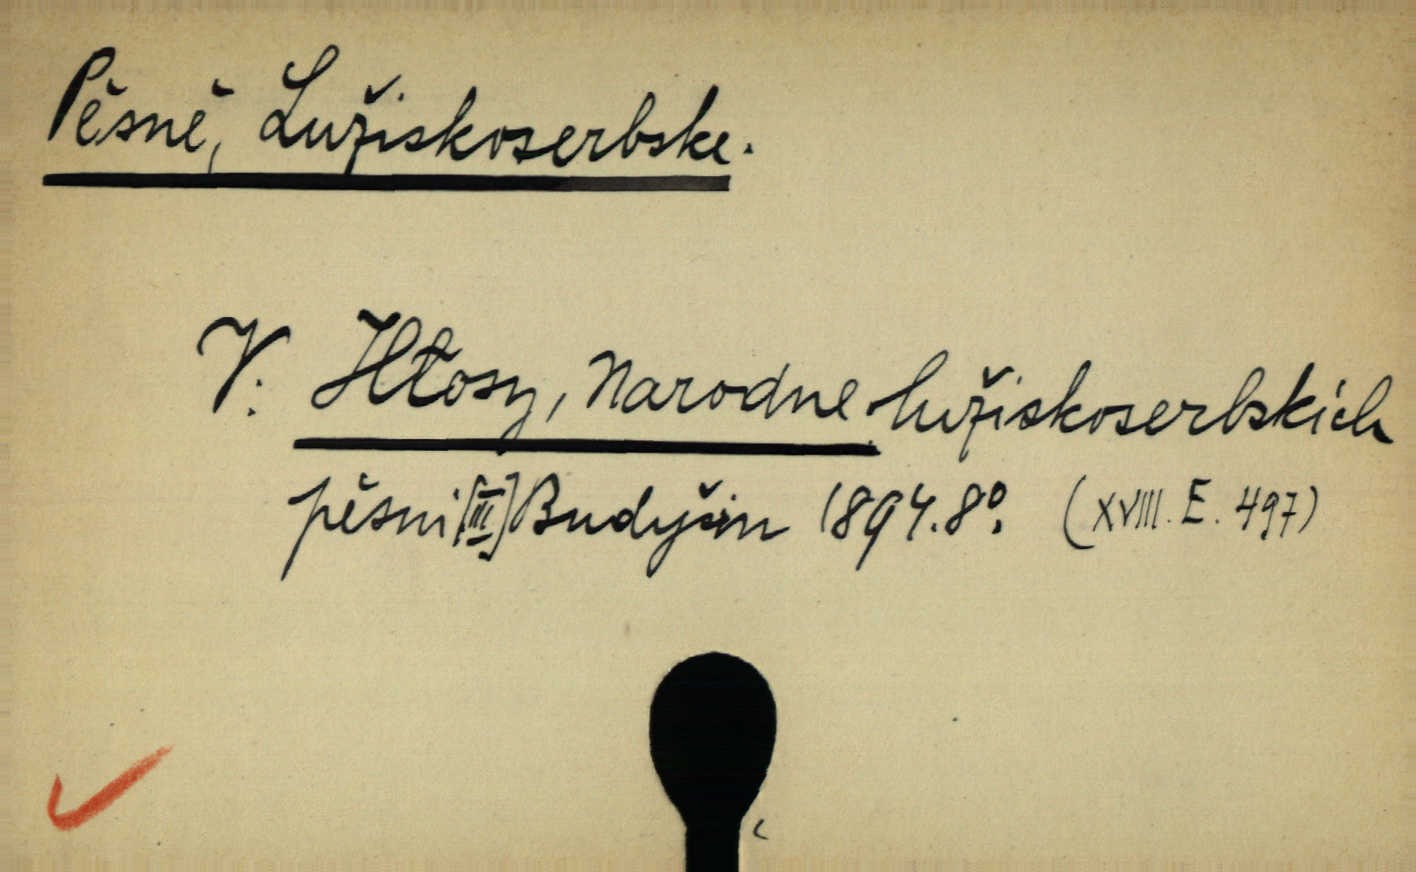 Pěsně, Łužiskoserbske.
V: Hłosy, Narodne łužiskoserbskich
pěsni [III] Budyšin 1894. 8º. (XVIII. E. 497)